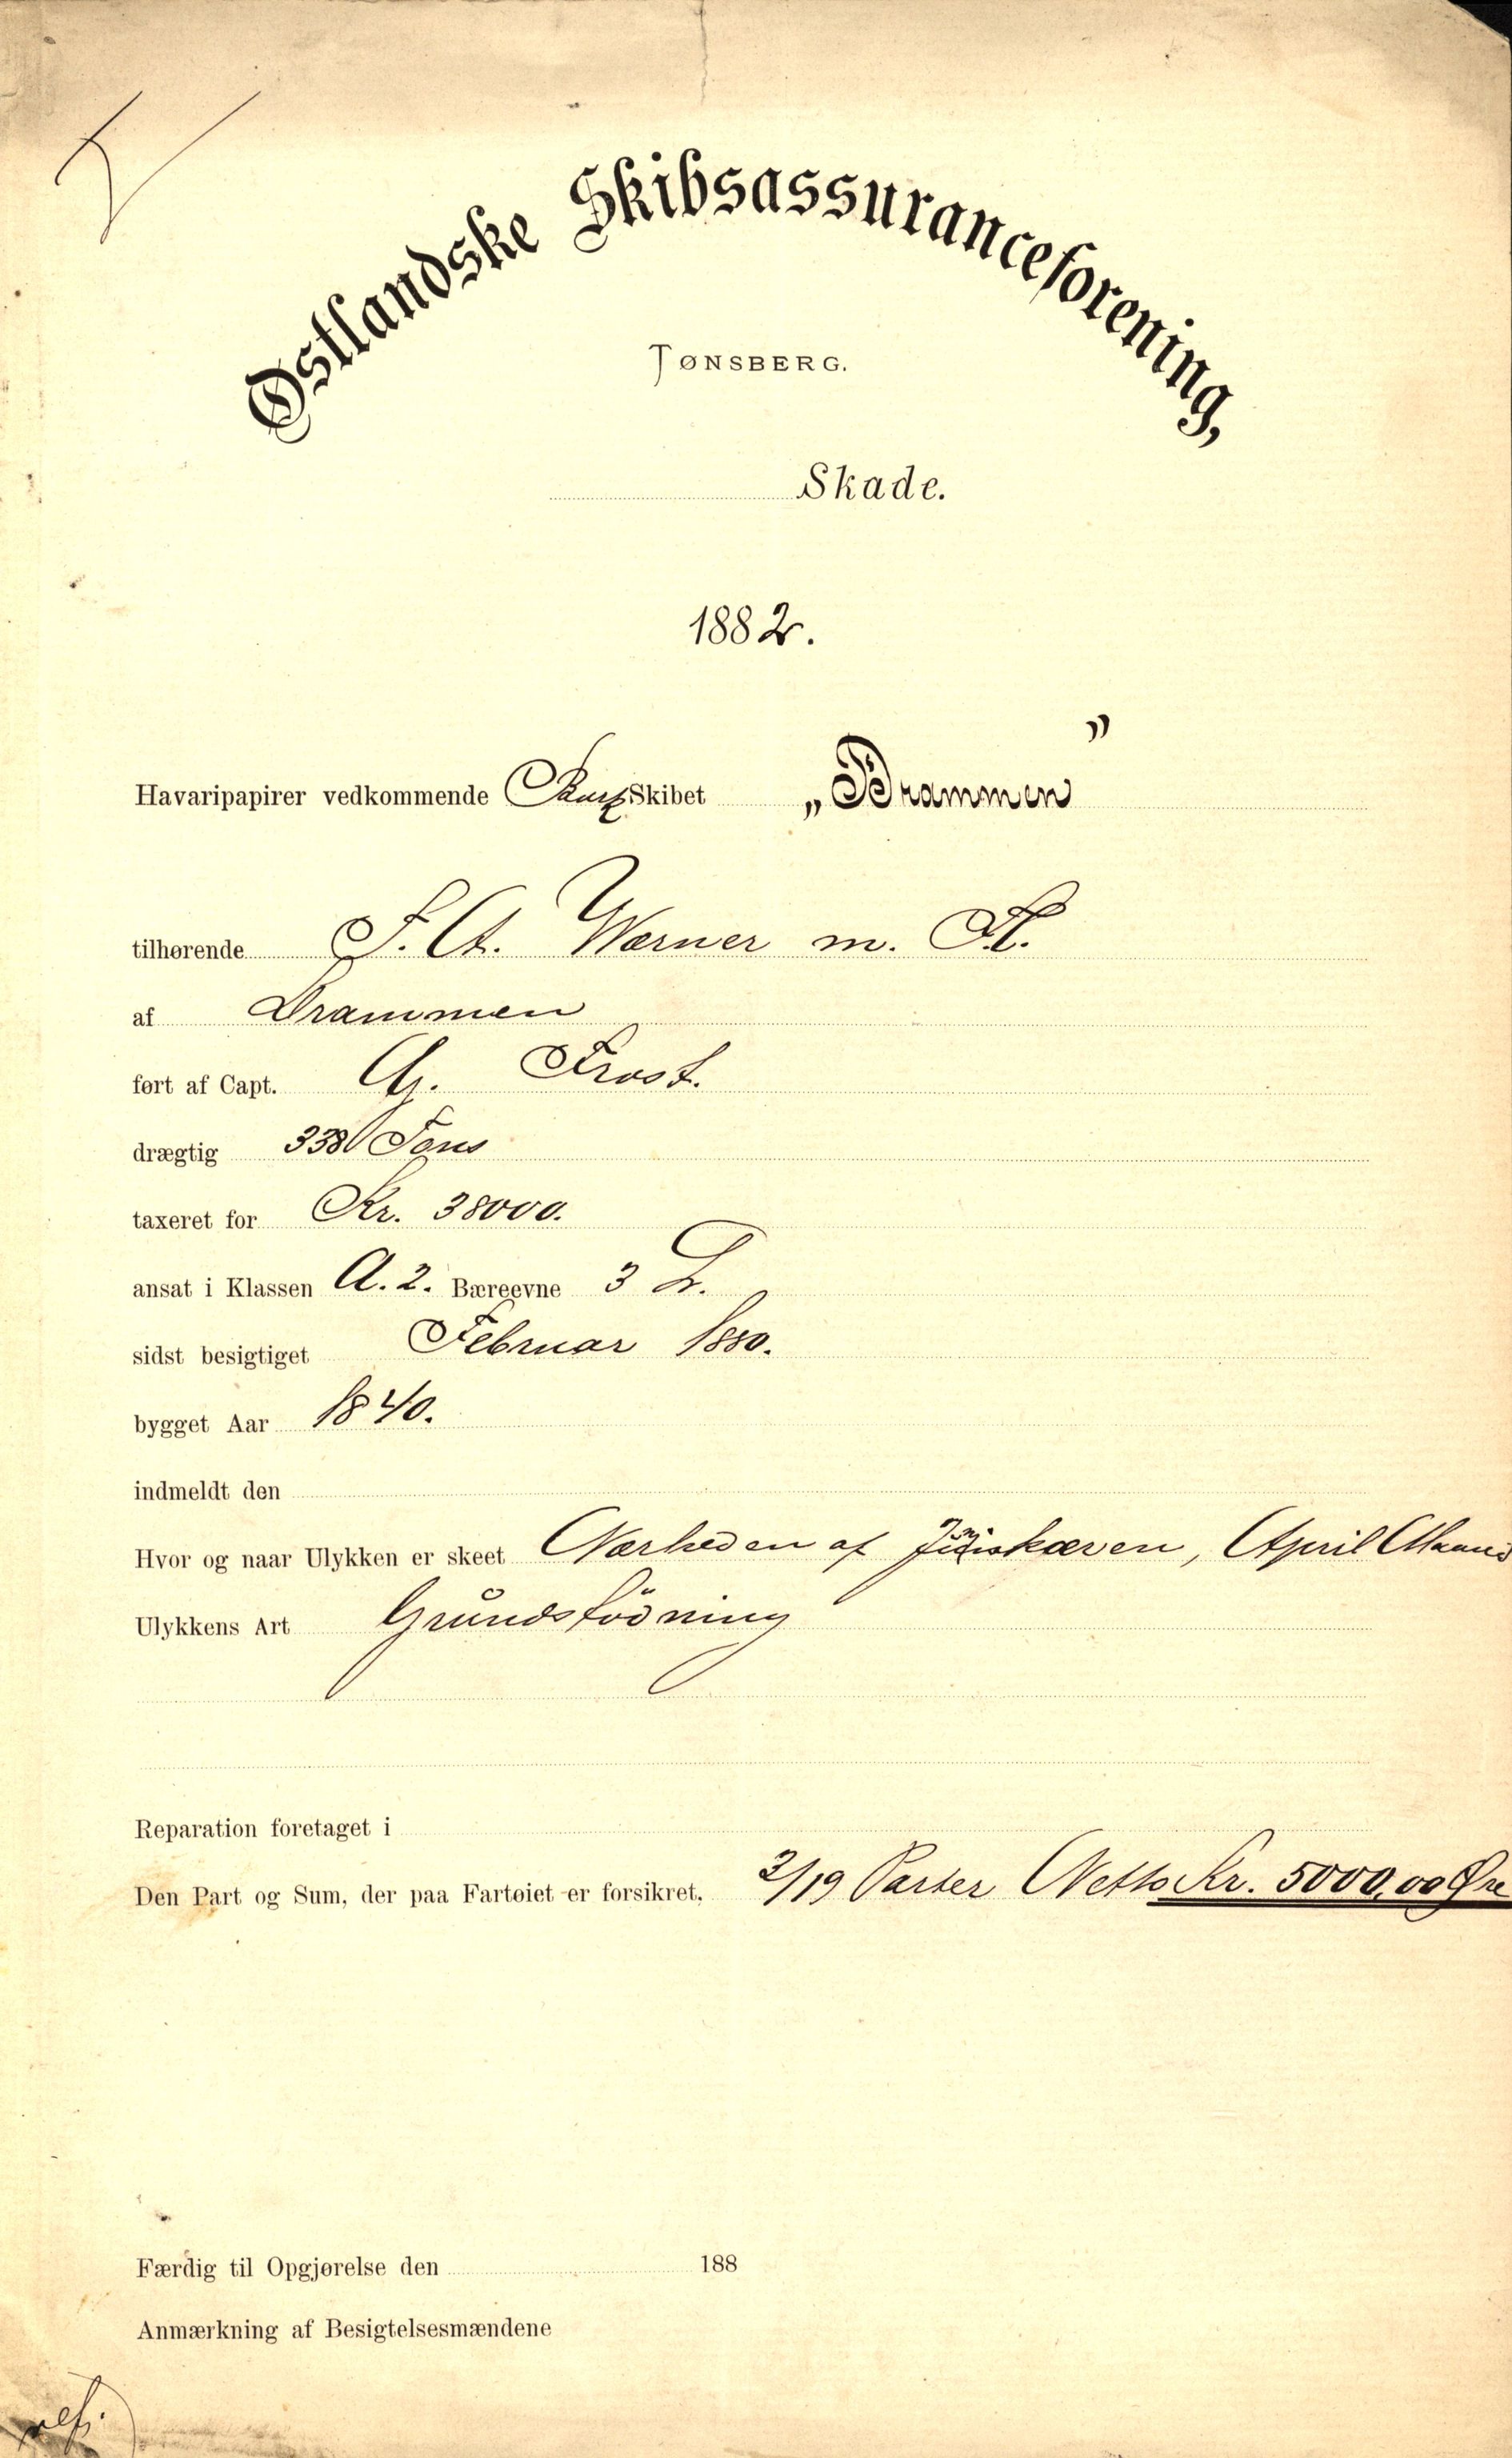 Østlandske Skibsassuranceforening,
TØNSBERG.
Skade.
1882.
Havaripapirer vedkommende Bark Skibet „Drammen”
tilhørende J. A. Werner m. Fl.
af Drammen
ført af Capt. G. Frost.
drægtig 338 Tons
taxeret for Kr. 38000.
ansat i Klassen A. 2. Bæreevne 3 Dr.
sidst besigtiget Februar 1880.
bygget Aar 1840.
indmeldt den
Hvor og naar Ulykken er skeet Nærheden af April Maaned
Ulykkens Art Grundstödning
Reparation foretaget i
Den Part og Sum, der paa Fartøiet er forsikret, 3/19 Parter Netto Kr. 5000,00 Øre
Færdig til Opgjørelse den 188
Anmærkning af Besigtelsesmændene